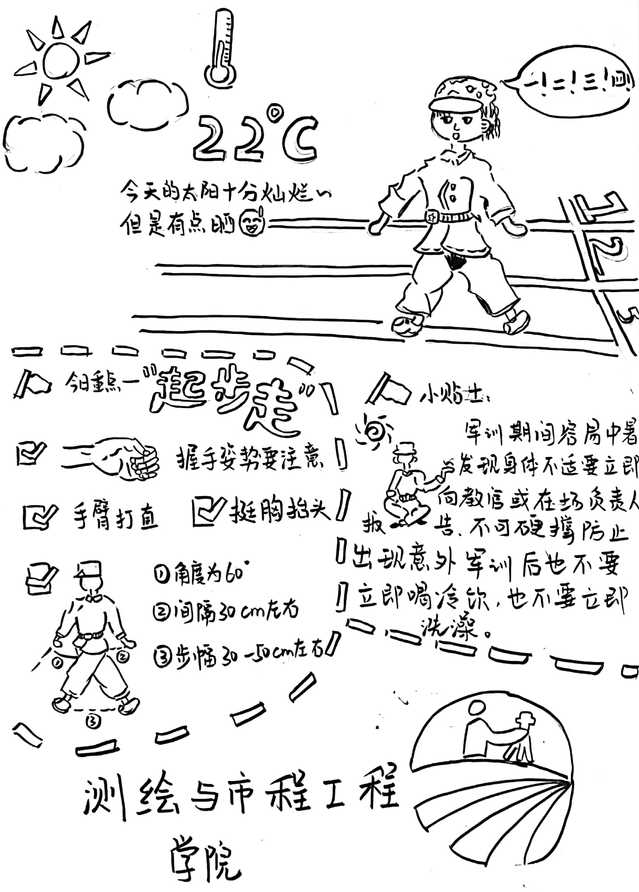 一!二!三!四!
22°C
今天的太阳十分灿烂~
但是有点晒
1
2
3
今日重点一"起步走"
握手姿势要注意
手臂打直
挺胸抬头
①角度为60°
②间隔30cm左右
③步幅30-50cm左右
①
②
③
小贴士:
军训期间容易中暑
发现身体不适要立即
向教官或在场负责人
报告、不可硬撑防止
出现意外 军训后也不要
立即喝冷饮,也不要立即
洗澡。
测绘与市程工程
学院